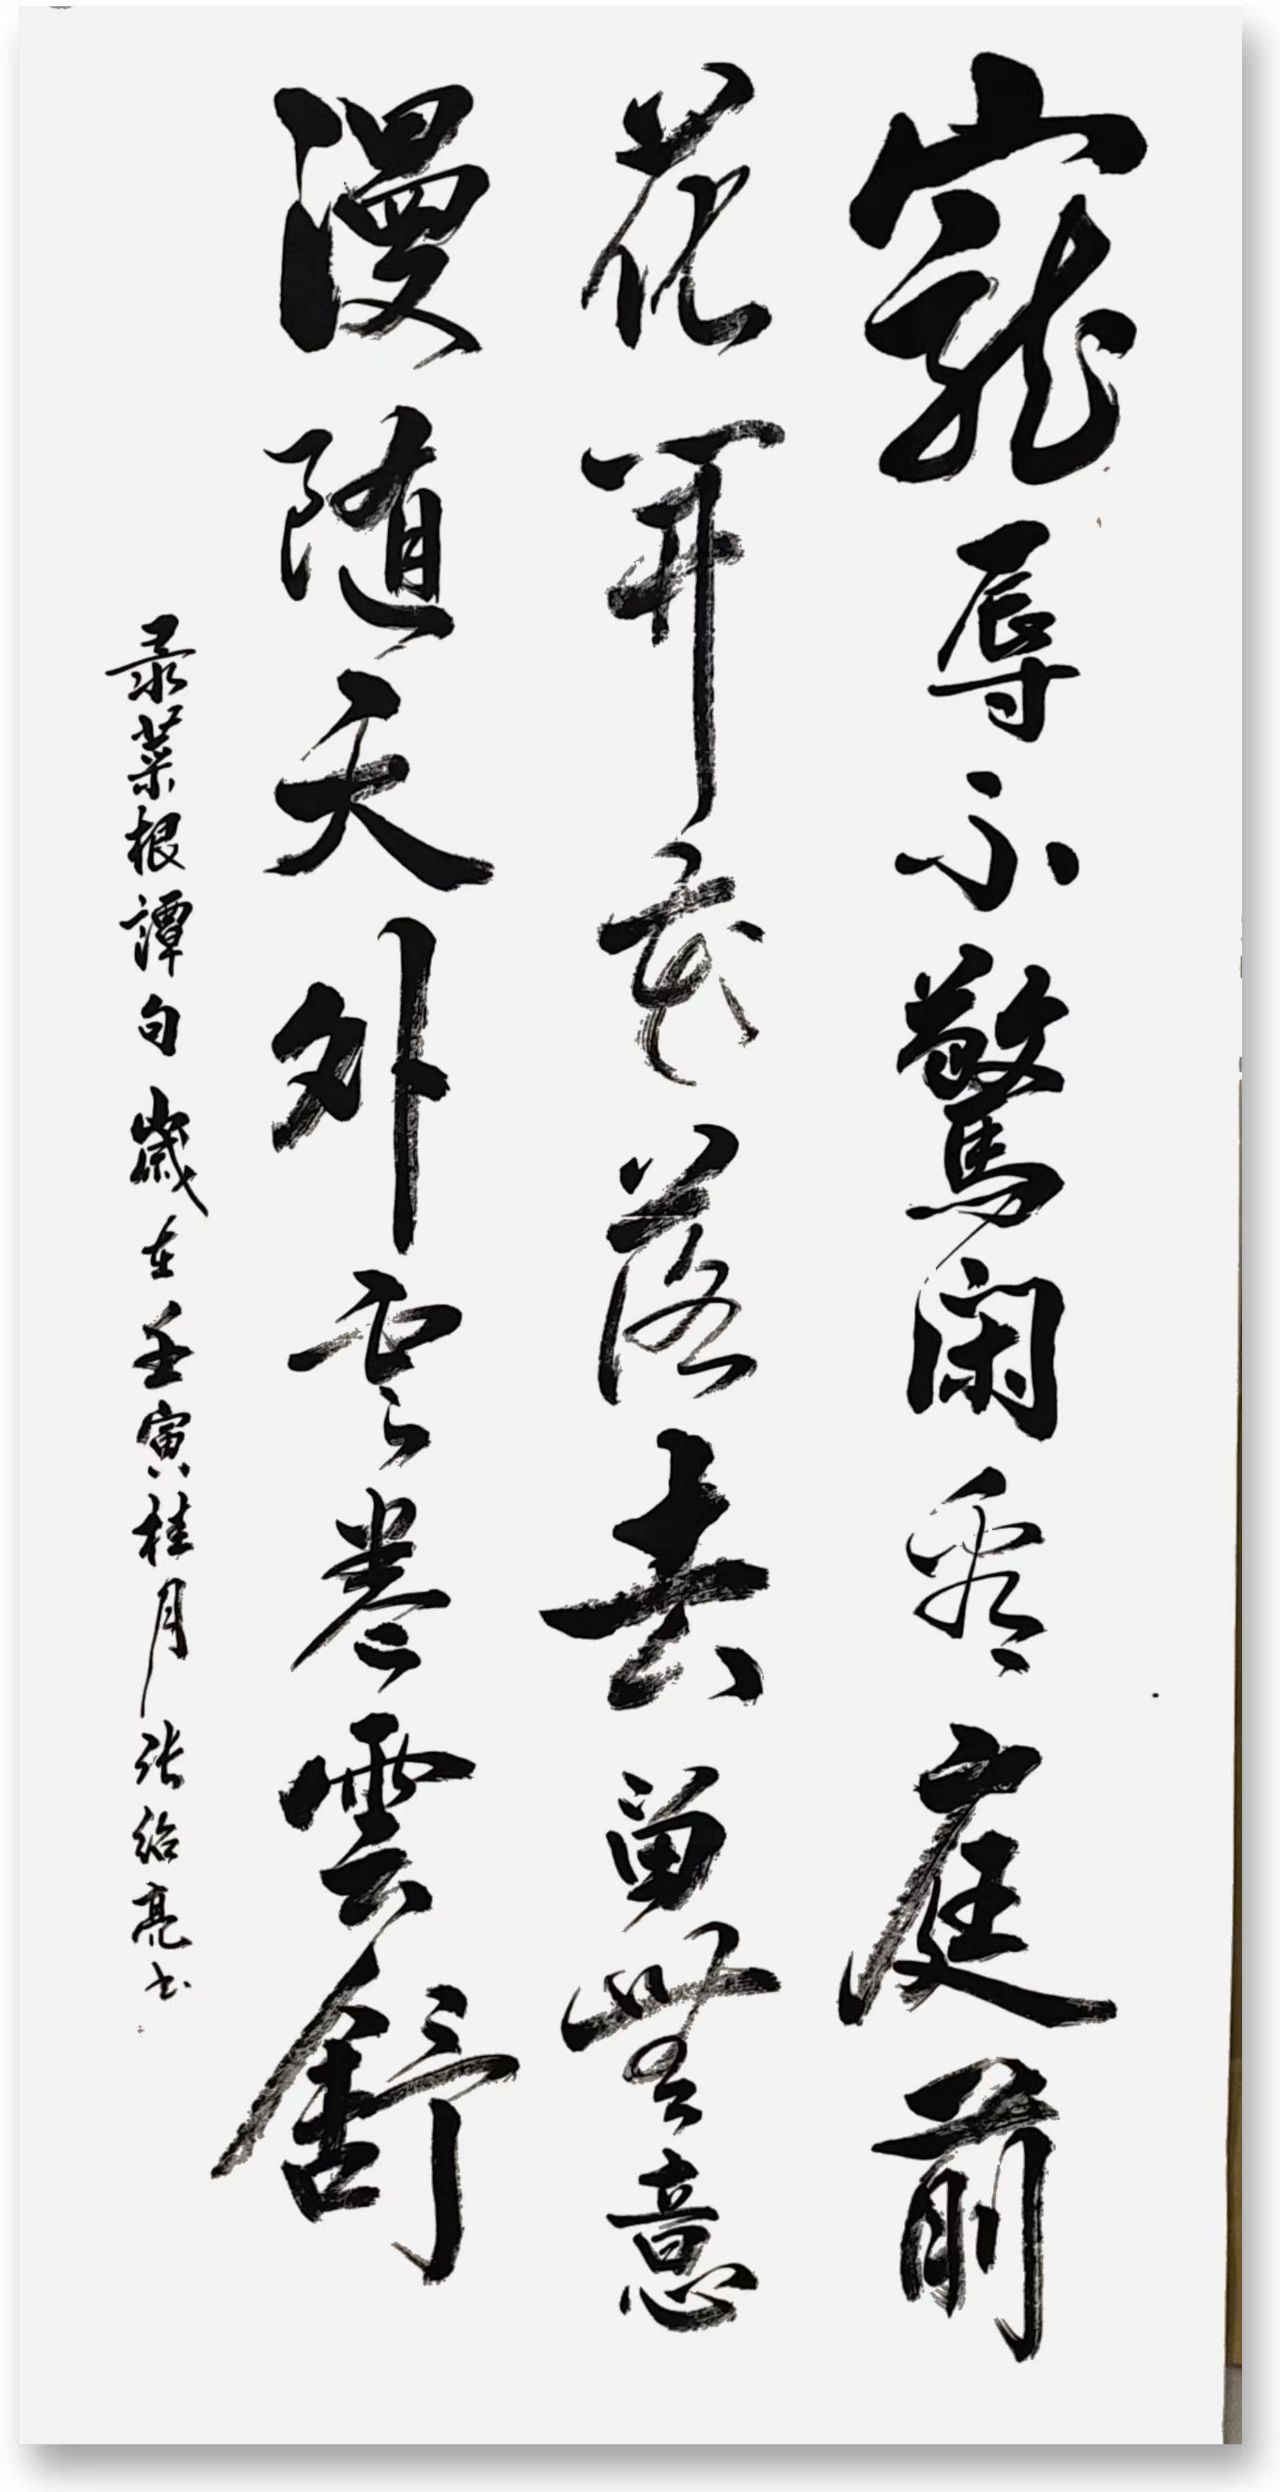 寵辱不驚闲看庭前
花开花落去留無意
漫随天外云卷雲舒
录菜根譚句歲在壬寅桂月张绍亮书